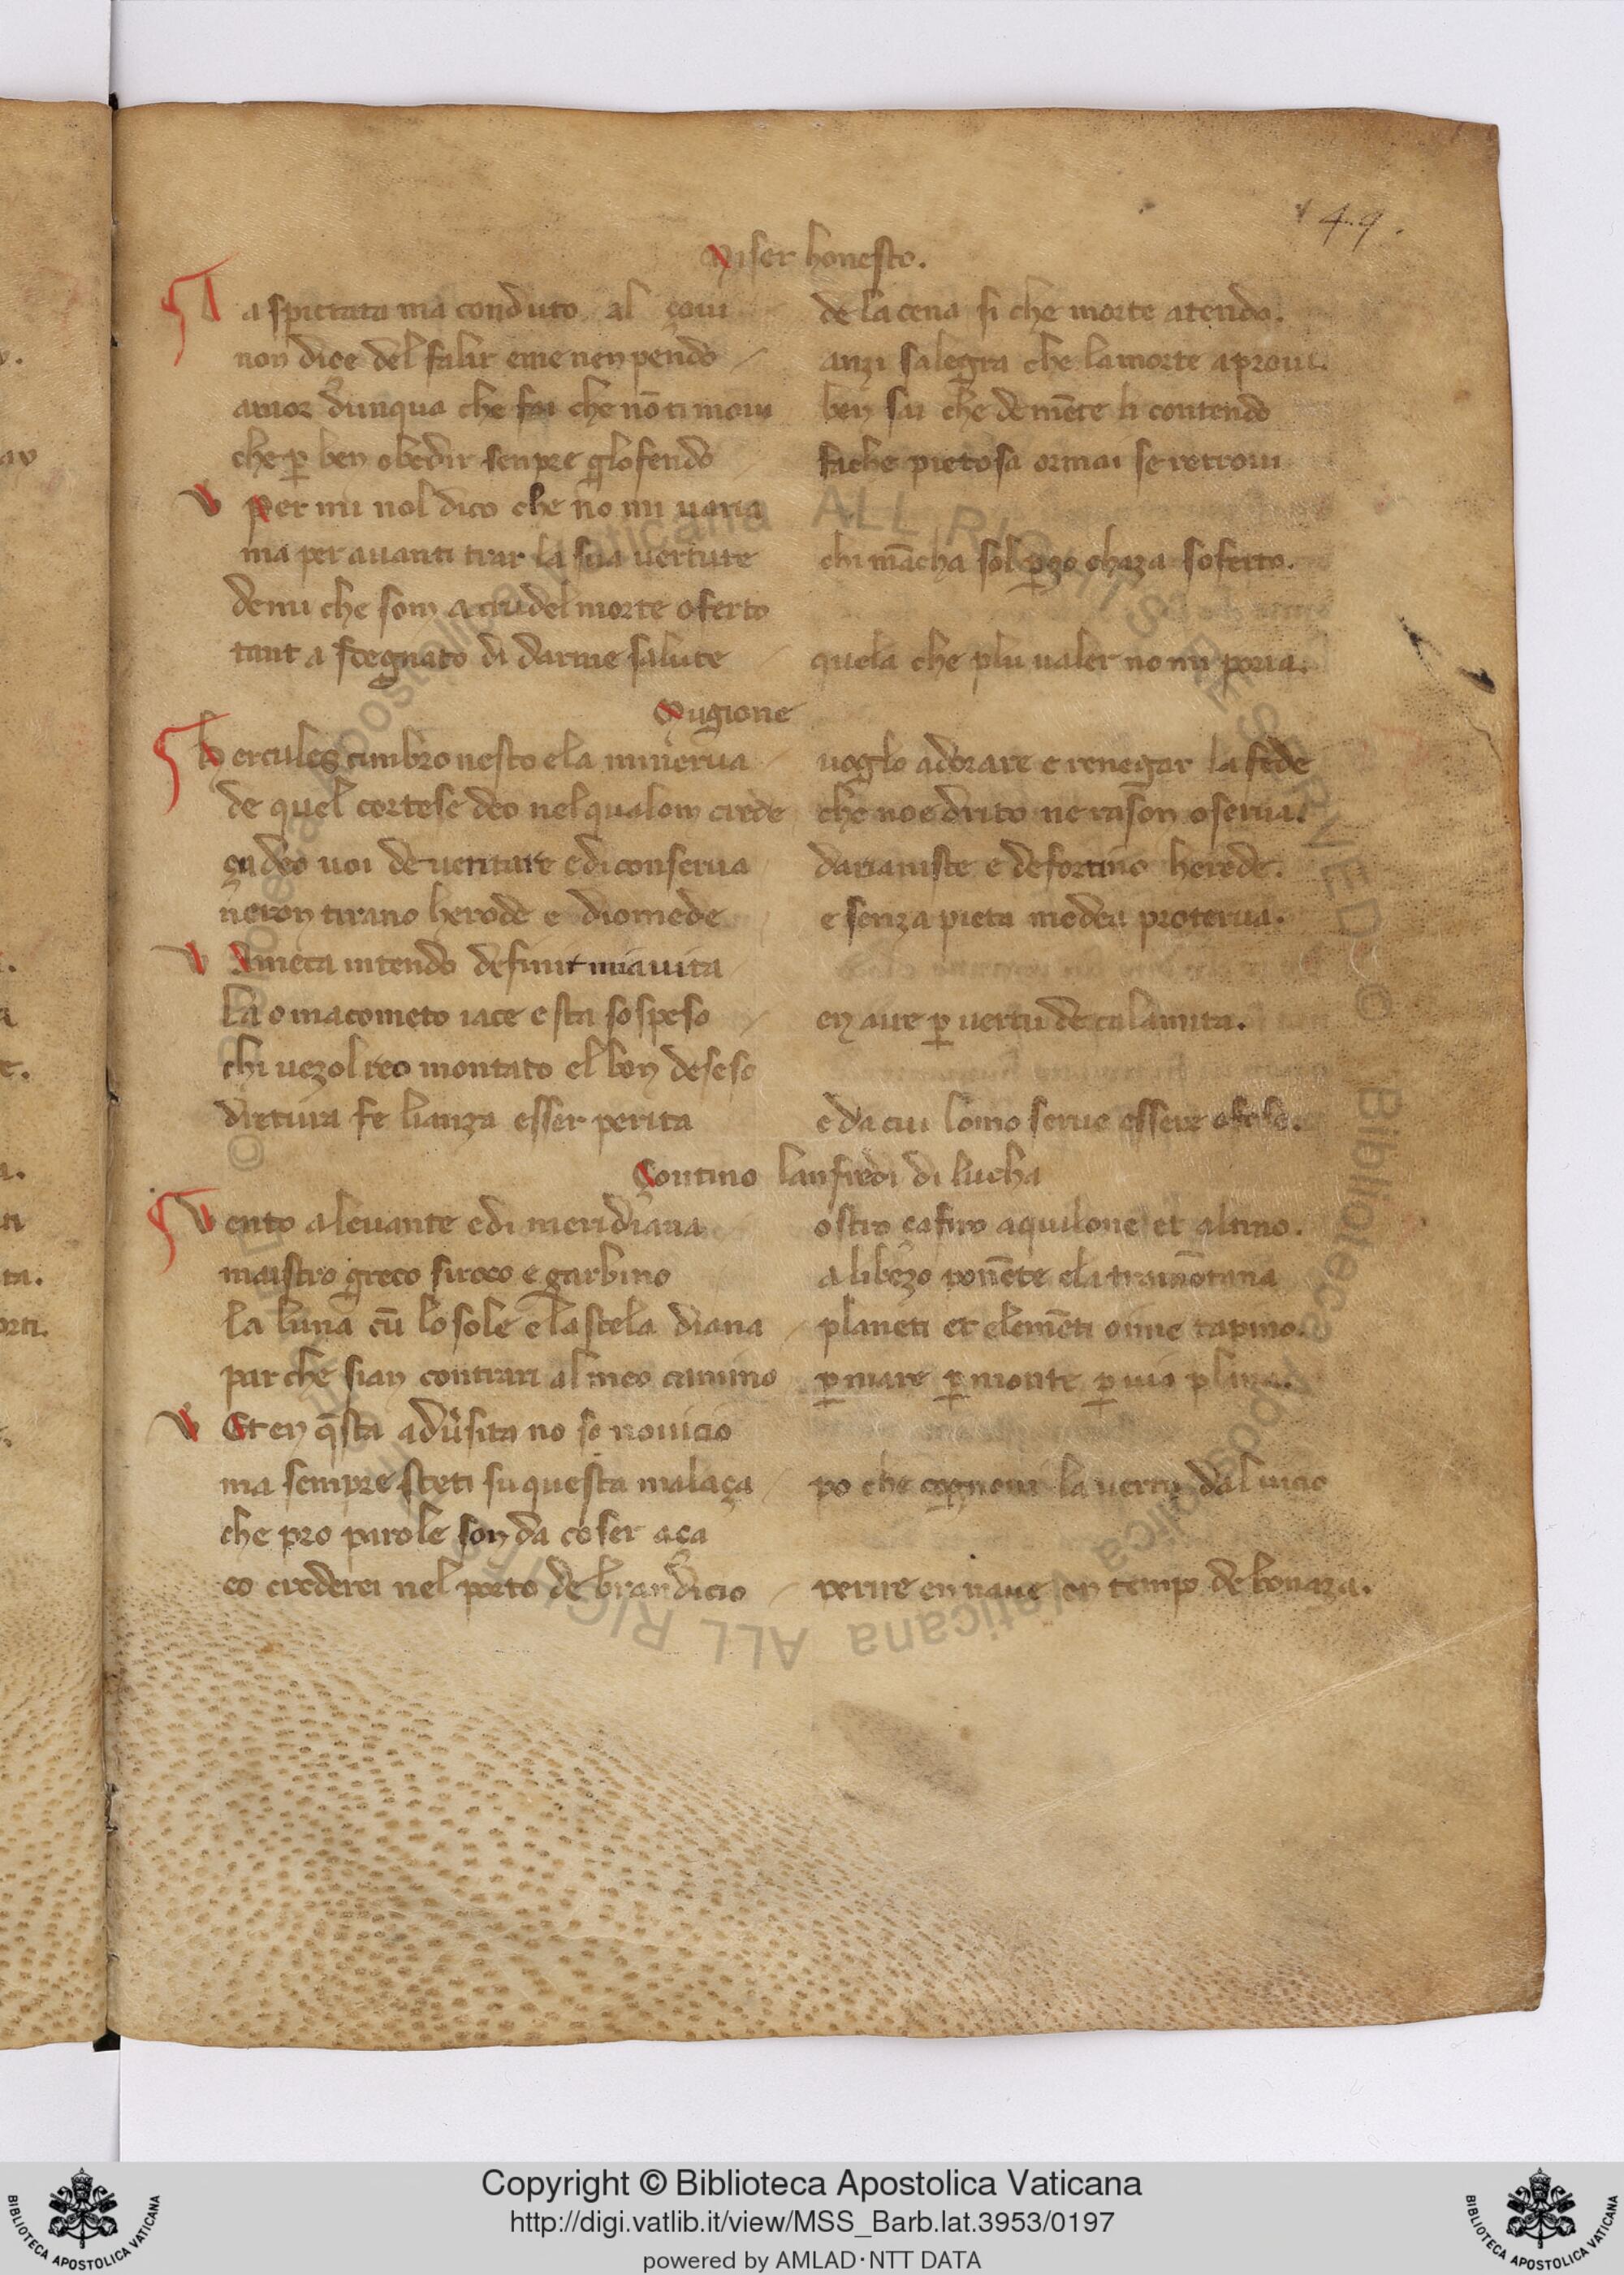 149.
Miser honesto.
La spietata ma conduto al çoui de la cena si che morte atendo.
non dice del falir eme nen pendo anzi salegra che la morte aproui.
amor dunqua che fai che nō ti moui ben sai che de mēte li contendo
che ꝑ ben obedir senpre glofendo fache pietosa ormai se retroui
V Per mi nol dico che no mi uaria
ma per auanti trar la sua uertute chi mācha sol ꝑzo chaza soferto.
de mi che som a crudel morte oferto
tant a sdegnato di darme salute quela che plu ualer no mi poria.
Mugione
hercules cimbro uesto e la minerua uoglo adorare e renegar la fede
de quel cortese deo nel qualom crede che no e drito ne rason oserua.
ça deo uoi de ueritate e di conserua darianiste e de fortino herede.
neron tirano herode e diomede e senza pieta medea proterua.
V A meca intendo de finir mia uita
la o macometo iace e sta sospeso en aire ꝑ uertu de calamita.
chi uezol reo montato el ben deseso
diretura fe lianza esser perita e da cui lomo serue essere ofeso.
Contino lanfredi di lucha
Vento a leuante e di meridiana ostro çafiro aquilone et altino.
maistro greco siroco e garbino a libezo ponēte e la tramōtana
la luna cū lo sole e la stela diana planeti et elemēti oime tapino.
par che sian contrari al meo camino ꝑ mare ꝑ monte ꝑ uia plana.
V Et en q̄sta aduersita no so nouicio
ma sempre steti su questa malaça po che cognoui la uertu dal uicio
che pro parole son da coser aça
eo crederei nel porto de brandicio perire en naue en tempo de bonaza.
Copyright © Biblioteca Apostolica Vaticana
http://digi.vatlib.it/view/MSS_Barb.lat.3953/0197
powered by AMLAD·NTT DATA